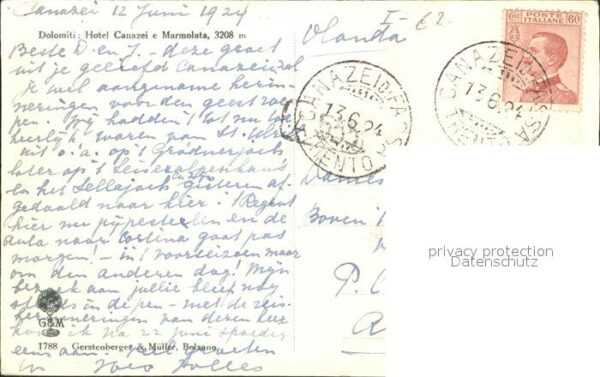 Canazei 12 Juni 1924
I-€2
Dolomiti: Hotel Canazei e Marmolata, 3208 m
Olanda
POSTE ITALIANE
60
CANAZEI DI FASSA
13.6.24
TRENTO
CANAZEI DI FASSA
13.6.24
TRENTO
Beste D. en J. - deze groet
uit je geliefd Canazei, zal
ik wil aangename herin-
neringen voor den geest
pen. Wij hadden 't tot nu toe
heerlijk, waren van St. Ulr
uit o.a. op 't Grödnerjoch
later op 't
en het Sellajoch en zijn gisteren af-
gedaald naar hier. 't Regent
hier nu pijpestelen en de
auto naar Cortina gaat pas
morgen! - in 't voorseizoen maar
om den anderen dag! Mijn
bezoek aan jullie bleef nog
steeds in de pen - met de reis-
herinneringen van dezen keer
ik na 22 Juni spoedig
eens aan. Veel groeten
in
Dames
Boven
P.
A
privacy protection
Datenschutz
G&M
1788 Gerstenberger & Müller, Bolzano